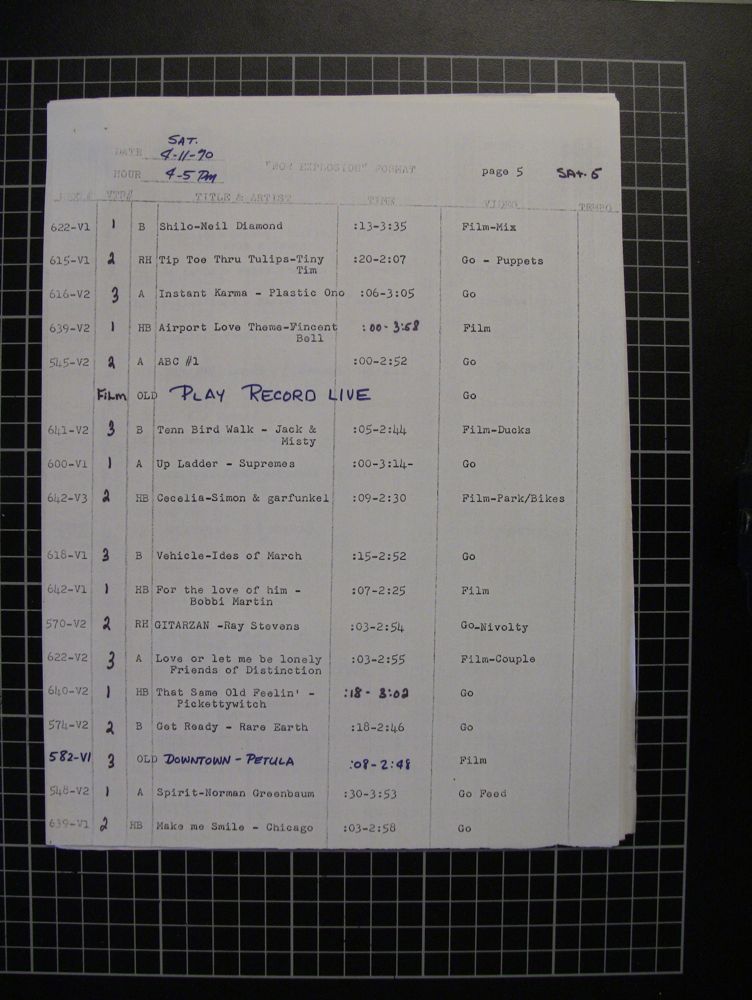 SAT.
DATE 4-11-70
HOUR 4-5 PM "NOW EXPLOSION" FORMAT page 5 SAT. 5
VTR# TITLE & ARTIST TIME VIDEO TEMPO
622-V1 1 B Shilo-Neil Diamond :13-3:35 Film-Mix
615-V1 2 RH Tip Toe Thru Tulips-Tiny :20-2:07 Go - Puppets
Tim
616-V2 3 A Instant Karma - Plastic Ono :06-3:05 Go
639-V2 1 HB Airport Love Theme-Vincent :00-3:58 Film
Bell
545-V2 2 A ABC #1 :00-2:52 Go
FiLm OLD PLAY RECORD LIVE Go
641-V2 3 B Tenn Bird Walk - Jack & :05-2:44 Film-Ducks
Misty
600-V1 1 A Up Ladder - Supremes :00-3:14- Go
642-V3 2 HB Cecelia-Simon & garfunkel :09-2:30 Film-Park/Bikes
618-V1 3 B Vehicle-Ides of March :15-2:52 Go
642-V1 1 HB For the love of him - :07-2:25 Film
Bobbi Martin
570-V2 2 RH GITARZAN -Ray Stevens :03-2:54 Go-Nivolty
622-V2 3 A Love or let me be lonely :03-2:55 Film-Couple
Friends of Distinction
640-V2 1 HB That Same Old Feelin' - :18-3:02 Go
Pickettywitch
574-V2 2 B Get Ready - Rare Earth :18-2:46 Go
582-V1 3 OLD DOWNTOWN - PETULA :08-2:48 Film
548-V2 1 A Spirit-Norman Greenbaum :30-3:53 Go Feed
639-V1 2 HB Make me Smile - Chicago :03-2:58 Go